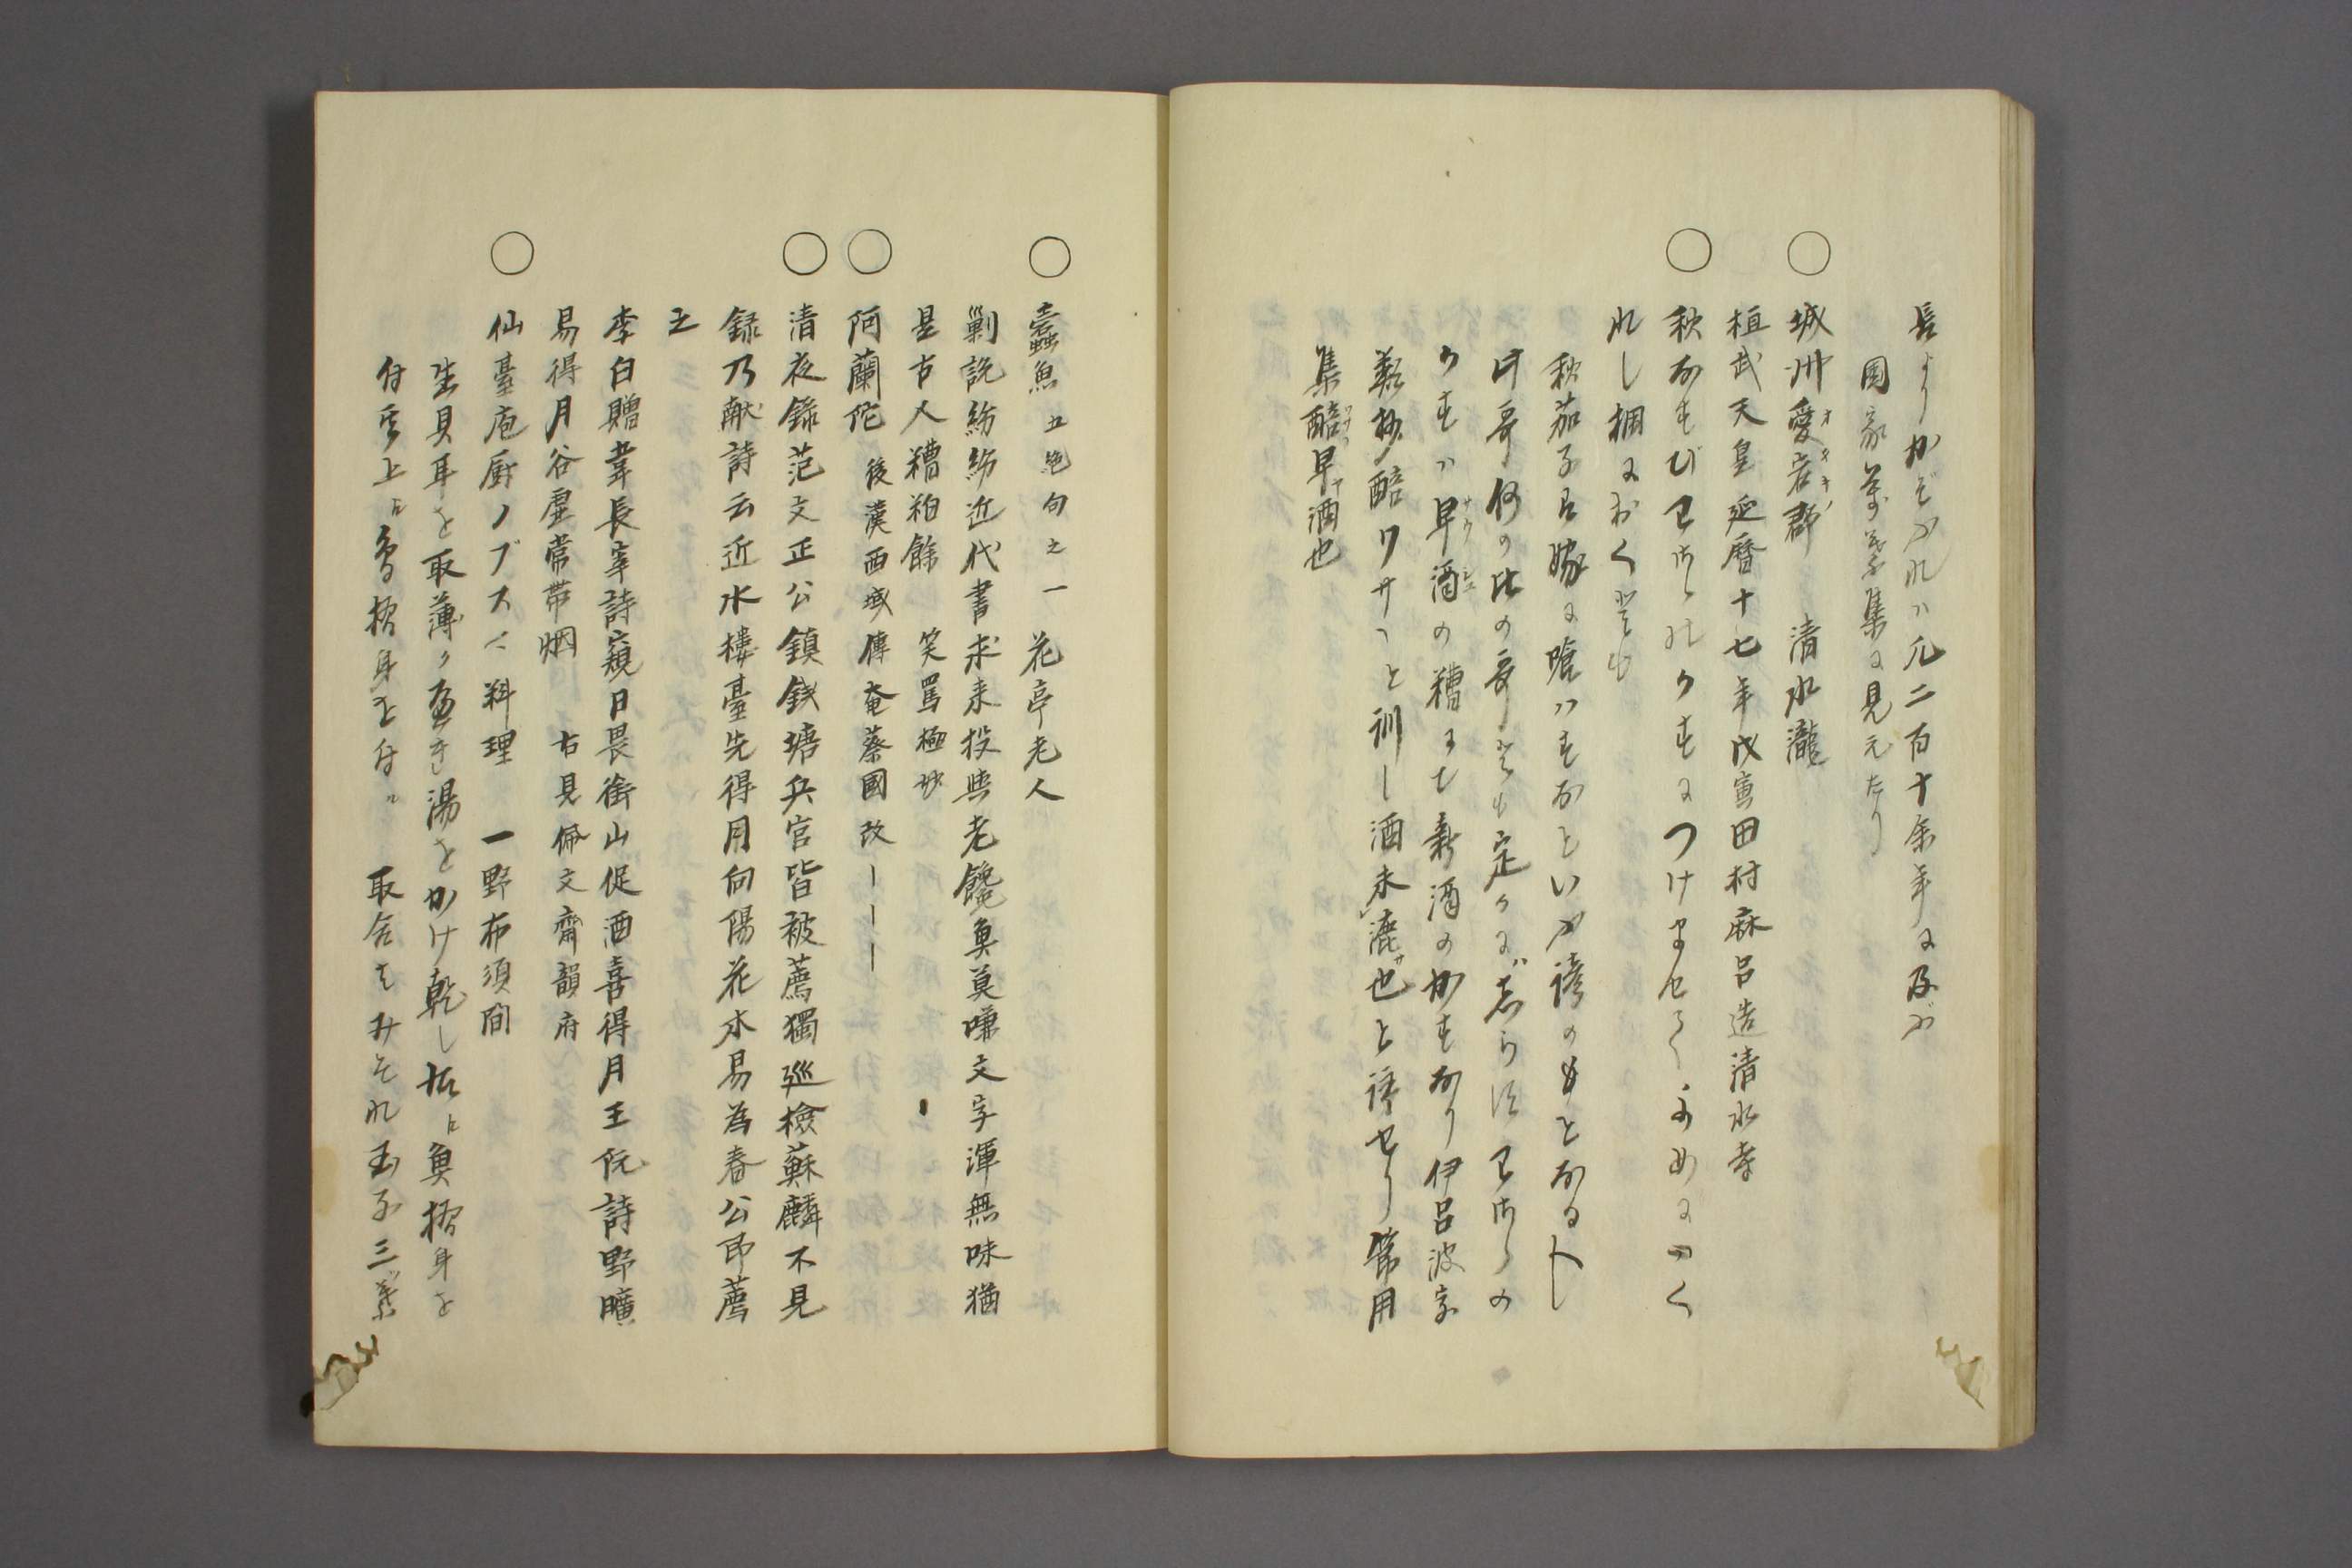 長よりかぞふれハ凡二百十余年に及ぶ
国家万葉集に見えたり
○城州愛宕郡　清水瀧
桓武天皇延暦十七年戊寅田村麻呂造清水寺
○秋なすびワさゝのかすにつけませてよめにハく
れし棚におくとも
秋茄子ハ嫁に喰ハすなといふ諺のもとなるべし
此哥何の比の哥とも定かにハしらねとワさゝの
かすハ早酒の糟にて新酒のかすなり伊呂波字
類抄醅ワサヽと訓し酒未漉也と譯せり 常用
集醅早酒也
○蠧魚 五絶句之一　花亭老人
剿説紛紛近代書求来投與老饞魚莫嫌文字渾無味猶
是古人糟粕餘　笑罵極妙
○阿蘭陀 後漢西域傳奄蔡國改ーーー
○清夜録范文正公鎮銭塘兵官皆被薦獨巡檢蘇麟不見
録乃献詩云近水樓臺先得月向陽花木易為春公即薦
之
李白贈韋長宰詩窺日畏銜山促酒喜得月王阮詩野曠
易得月谷虚常帯烟　右見佩文齋韻府
○仙臺庖厨ノブスイ料理　一野布須間
生貝耳を取薄ク魚き湯をかけ乾し右に魚摺身を
付重上に魚摺身を付　取合せみそれ玉子三葉